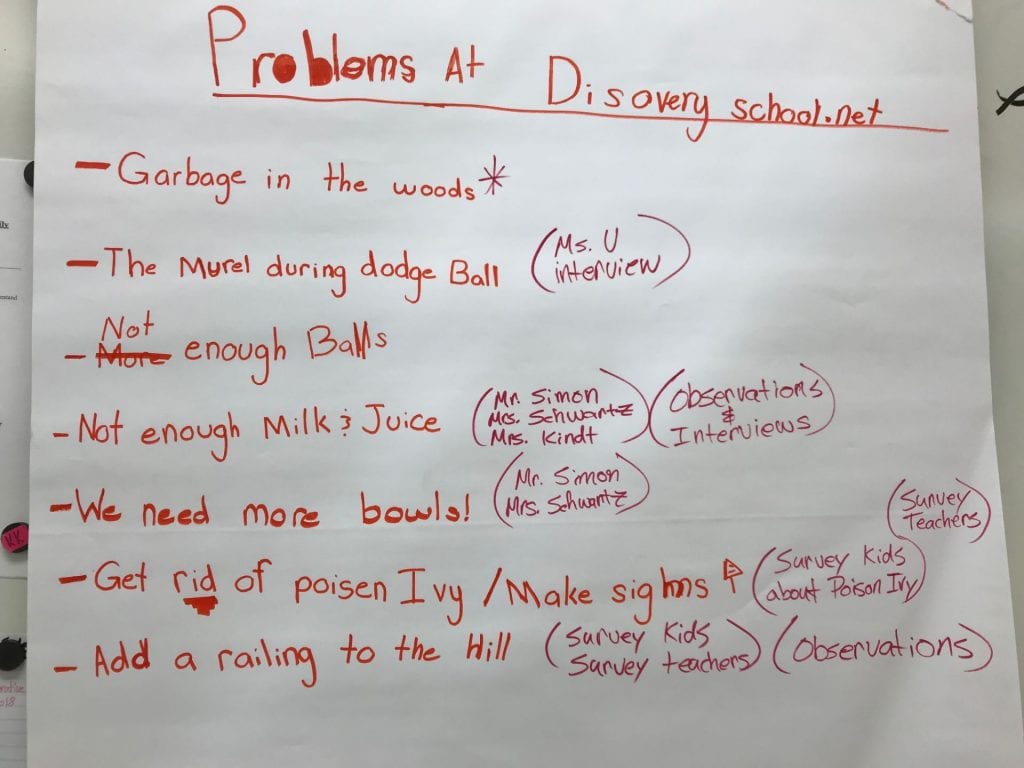 Problems At Disovery school.net
- Garbage in the woods *
- The Murel during dodge Ball (Ms. U interview)
- More Not enough Balls
- Not enough Milk & Juice (Mr. Simon Mrs. Schwartz Mrs. Kindt) (Observations & Interviews)
- We need more bowls! (Mr. Simon Mrs. Schwartz)
(Survey Teachers)
- Get rid of poisen Ivy / Make sighns (Survey Kids about Poison Ivy)
- Add a railing to the Hill (Survey Kids Survey teachers) (Observations)
KK
2018